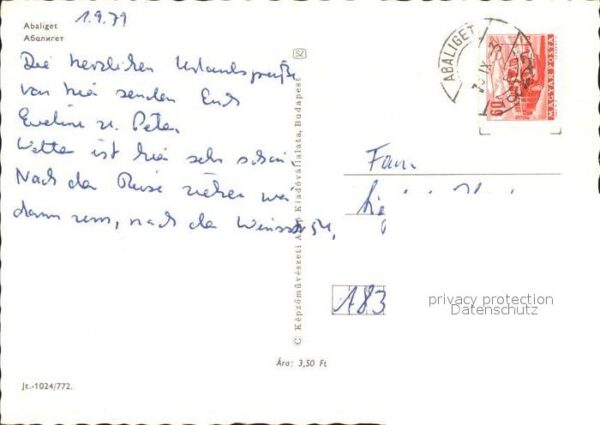 Abaliget
Абалигет
1.9.79
Die herzlichen Urlaubsgrüße
von hier senden Euch
Eveline u. Peter.
Wetter ist hier sehr schön.
Nach der Reise ziehen wir
dann um, nach der
ABALIGET
MAGYAR POSTA
60
Fam.
A83
privacy protection
Datenschutz
© Képzőművészeti Alap Kiadóvállalata, Budapest
Ára: 3,50 Ft
Jt.-1024/772.